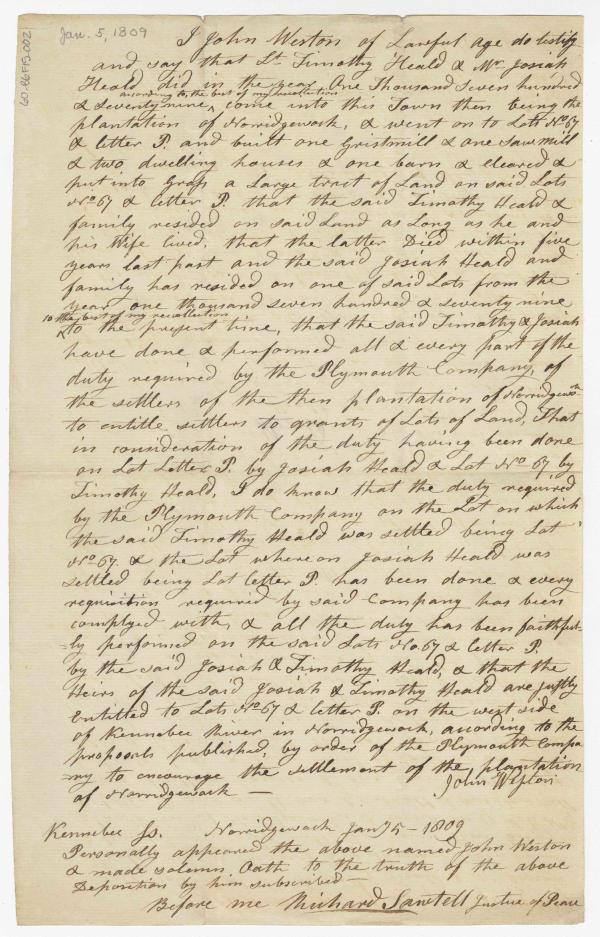 Jan. 5, 1809
60.86F15.002
I John Weston of Lawful age do testify
and say that Lt. Timothy Heald & Mr. Josiah
Heald did in the year One Thousand Seven hundred
according to the best of my recollection
& seventy nine ^ come into this Town then being the
plantation of Norridgewock, & went on to Lots No. 67
& letter P. and built one Gristmill & one Saw mill
& two dwelling houses & one barn & cleared &
put into Grass a Large tract of Land on said Lots
No. 67 & letter P. that the said Timothy Heald &
family resided on said Land as Long as he and
his Wife lived, that the latter Died within five
years last past and the said Josiah Heald and
family has resided on one of said Lots from the
year one thousand seven hundred & seventy nine
to the best of my recollection
^ to the present time, that the said Timothy & Josiah
have done & performed all & every part of the
duty required by the Plymouth Company, of
the settlers of the then plantation of Norridgewock
to entitle settlers to grants of Lots of Land, That
in consideration of the duty having been done
on Lot Letter P. by Josiah Heald & Lot No. 67 by
Timothy Heald, I do know that the duty required
by the Plymouth Company on the Lot on which
the said Timothy Heald was settled being Lot
No. 67. & the Lot whereon Josiah Heald was
settled being Lot letter P. has been done & every
requisition required by said Company has been
complyed with, & all the duty has been faithful-
-ly performed on the said Lots No. 67 & letter P.
by the said Josiah & Timothy Heald, & that the
Heirs of the said Josiah & Timothy Heald are justly
Entitled to Lots No. 67 & letter P. on the west side
of Kennebec River in Norridgewock, according to the
proposals published, by order of the Plymouth Compa
ny to encourage the settlement of the plantation
of Norridgewock —
John Weston
Kennebec Ss. Norridgewock Jany 5 - 1809
Personally appeared the above named John Weston
& made solemn Oath to the truth of the above
Deposition by him subscribed —
Before me Richard Sawtell Justice of Peace